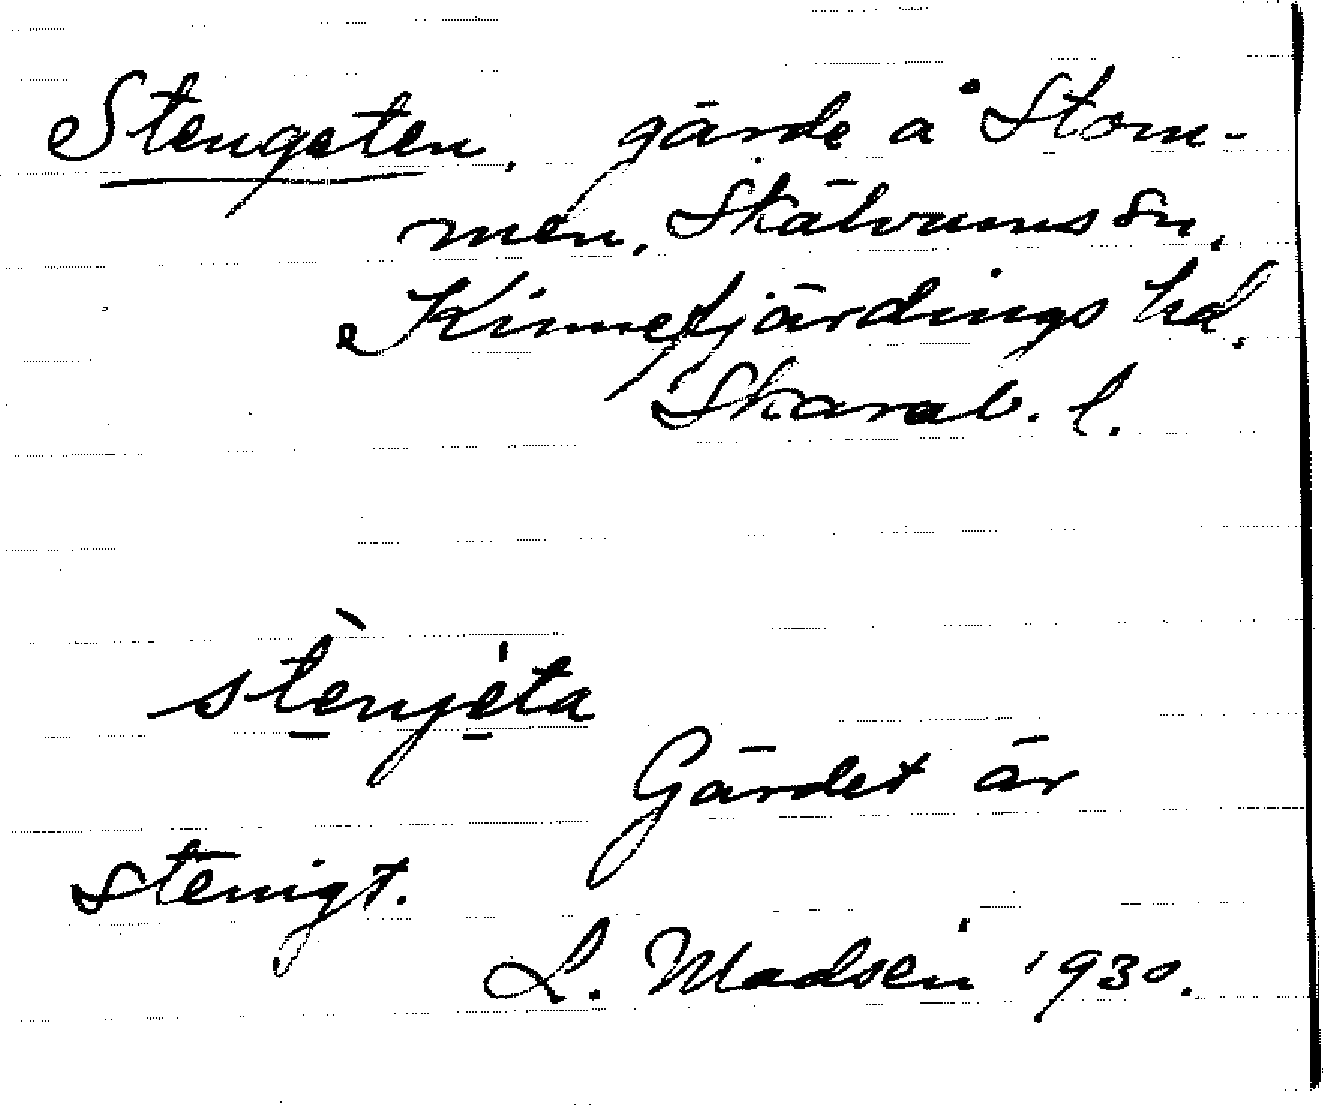 Stengeten, gärde å Stom-
men, Skälvums sn,
Kinnefjärdings hd.
Skarab. l.
stènjéta
Gärdet är
stenigt.
L. Madsén 1930.